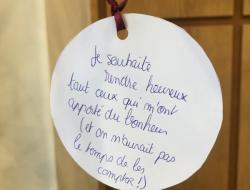 Je souhaite
rendre heureux
tout ceux qui m'ont
apporté du bonheur
(et on n'aurait pas
le temps de les
compter!)